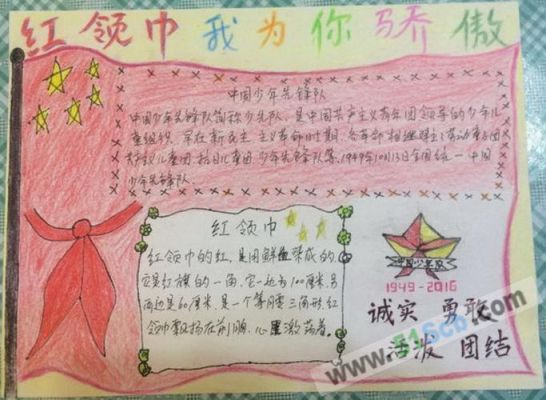 红领巾 我为你骄傲
中国少年先锋队
中国少年先锋队简称少先队，是中国共产主义青年团领导的少年儿
童组织，早在新民主主义革命时期，各革命
儿童团，抗日儿童团，少年先锋队等，1949年10月13日全国统一中国
少年先锋队.
红领巾
红领巾的红，是用鲜血染成的
它是红旗的一角，它一边为100厘米，另
两边是60厘米，是一个等腰三角形，红
领巾飘扬在前胸，心里激荡着.
中国少先队
1949-2016
诚实 勇敢
活泼 团结
www.51Scb.com